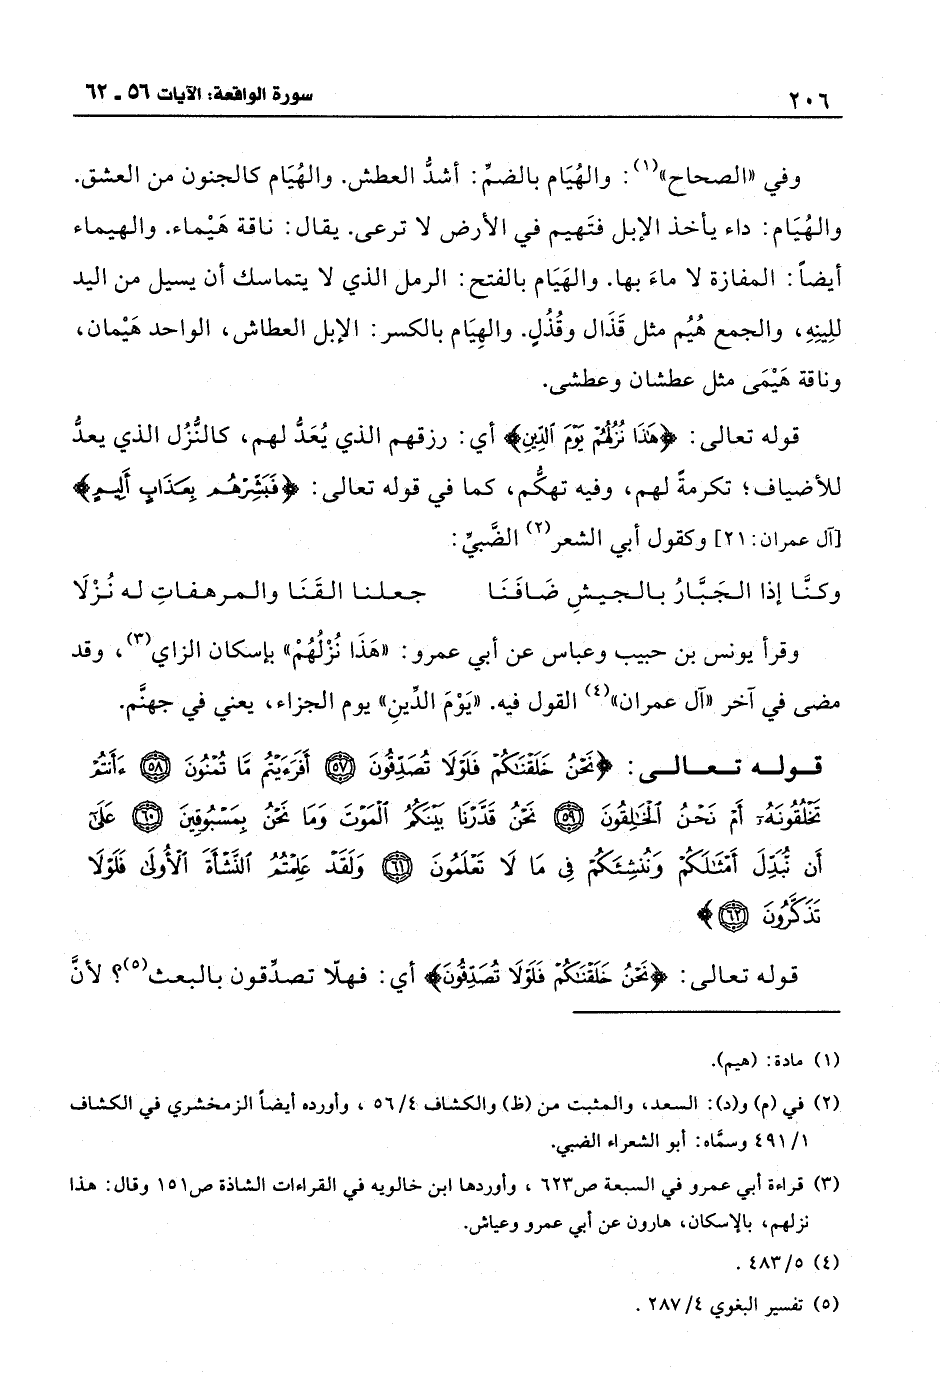 ٢٠٦ سورة الواقعة: الآيات ٥٦ ـ ٦٢
وفي «الصحاح»(١): والهُيَام بالضمِّ: أشدُّ العطش. والهُيَام كالجنون من العشق.
والهُيَام: داء يأخذ الإبل فتَهيم في الأرض لا ترعى. يقال: ناقة هَيْماء. والهيماء
أيضاً: المفازة لا ماءَ بها. والهَيَام بالفتح: الرمل الذي لا يتماسك أن يسيل من اليد
للِينِهِ، والجمع هُيُم مثل قَذَال وقُذُلٍ. والهِيَام بالكسر: الإبل العطاش، الواحد هَيْمان،
وناقة هَيْمَى مثل عطشان وعطشى.
قوله تعالى: ﴿هَٰذَا نُزُلُهُمْ يَوْمَ ٱلدِّينِ﴾ أي: رزقهم الذي يُعَدُّ لهم، كالنُّزُل الذي يعدُّ
للأضياف؛ تكرمةً لهم، وفيه تهكُّم، كما في قوله تعالى: ﴿فَبَشِّرْهُم بِعَذَابٍ أَلِيمٍ﴾
[آل عمران: ٢١] وكقول أبي الشعر(٢) الضَّبيِّ:
وكنَّا إذا الجَبَّارُ بالجيشِ ضَافَنَا جعلنا القَنَا والمرهفاتِ له نُزْلَا
وقرأ يونس بن حبيب وعباس عن أبي عمرو: «هَذَا نُزْلُهُمْ» بإسكان الزاي(٣)، وقد
مضى في آخر «آل عمران»(٤) القول فيه. «يَوْمَ الدِّينِ» يوم الجزاء، يعني في جهنَّم.
قوله تعالى: ﴿نَحْنُ خَلَقْنَٰكُمْ فَلَوْلَا تُصَدِّقُونَ ٥٧ أَفَرَءَيْتُم مَّا تُمْنُونَ ٥٨ ءَأَنتُمْ
تَخْلُقُونَهُۥٓ أَمْ نَحْنُ ٱلْخَٰلِقُونَ ٥٩ نَحْنُ قَدَّرْنَا بَيْنَكُمُ ٱلْمَوْتَ وَمَا نَحْنُ بِمَسْبُوقِينَ ٦٠ عَلَىٰٓ
أَن نُّبَدِّلَ أَمْثَٰلَكُمْ وَنُنشِئَكُمْ فِى مَا لَا تَعْلَمُونَ ٦١ وَلَقَدْ عَلِمْتُمُ ٱلنَّشْأَةَ ٱلْأُولَىٰ فَلَوْلَا
تَذَكَّرُونَ ٦٢﴾
قوله تعالى: ﴿نَحْنُ خَلَقْنَٰكُمْ فَلَوْلَا تُصَدِّقُونَ﴾ أي: فهلَّا تصدِّقون بالبعث(٥)؟ لأنَّ
(١) مادة: (هيم).
(٢) في (م) و(د): السعد، والمثبت من (ظ) والكشاف ٥٦/٤ ، وأورده أيضاً الزمخشري في الكشاف
٤٩١/١ وسمَّاه: أبو الشعراء الضبي.
(٣) قراءة أبي عمرو في السبعة ص٦٢٣ ، وأوردها ابن خالويه في القراءات الشاذة ص١٥١ وقال: هذا
نزلهم، بالإسكان، هارون عن أبي عمرو وعياش.
(٤) ٤٨٣/٥ .
(٥) تفسير البغوي ٢٨٧/٤ .